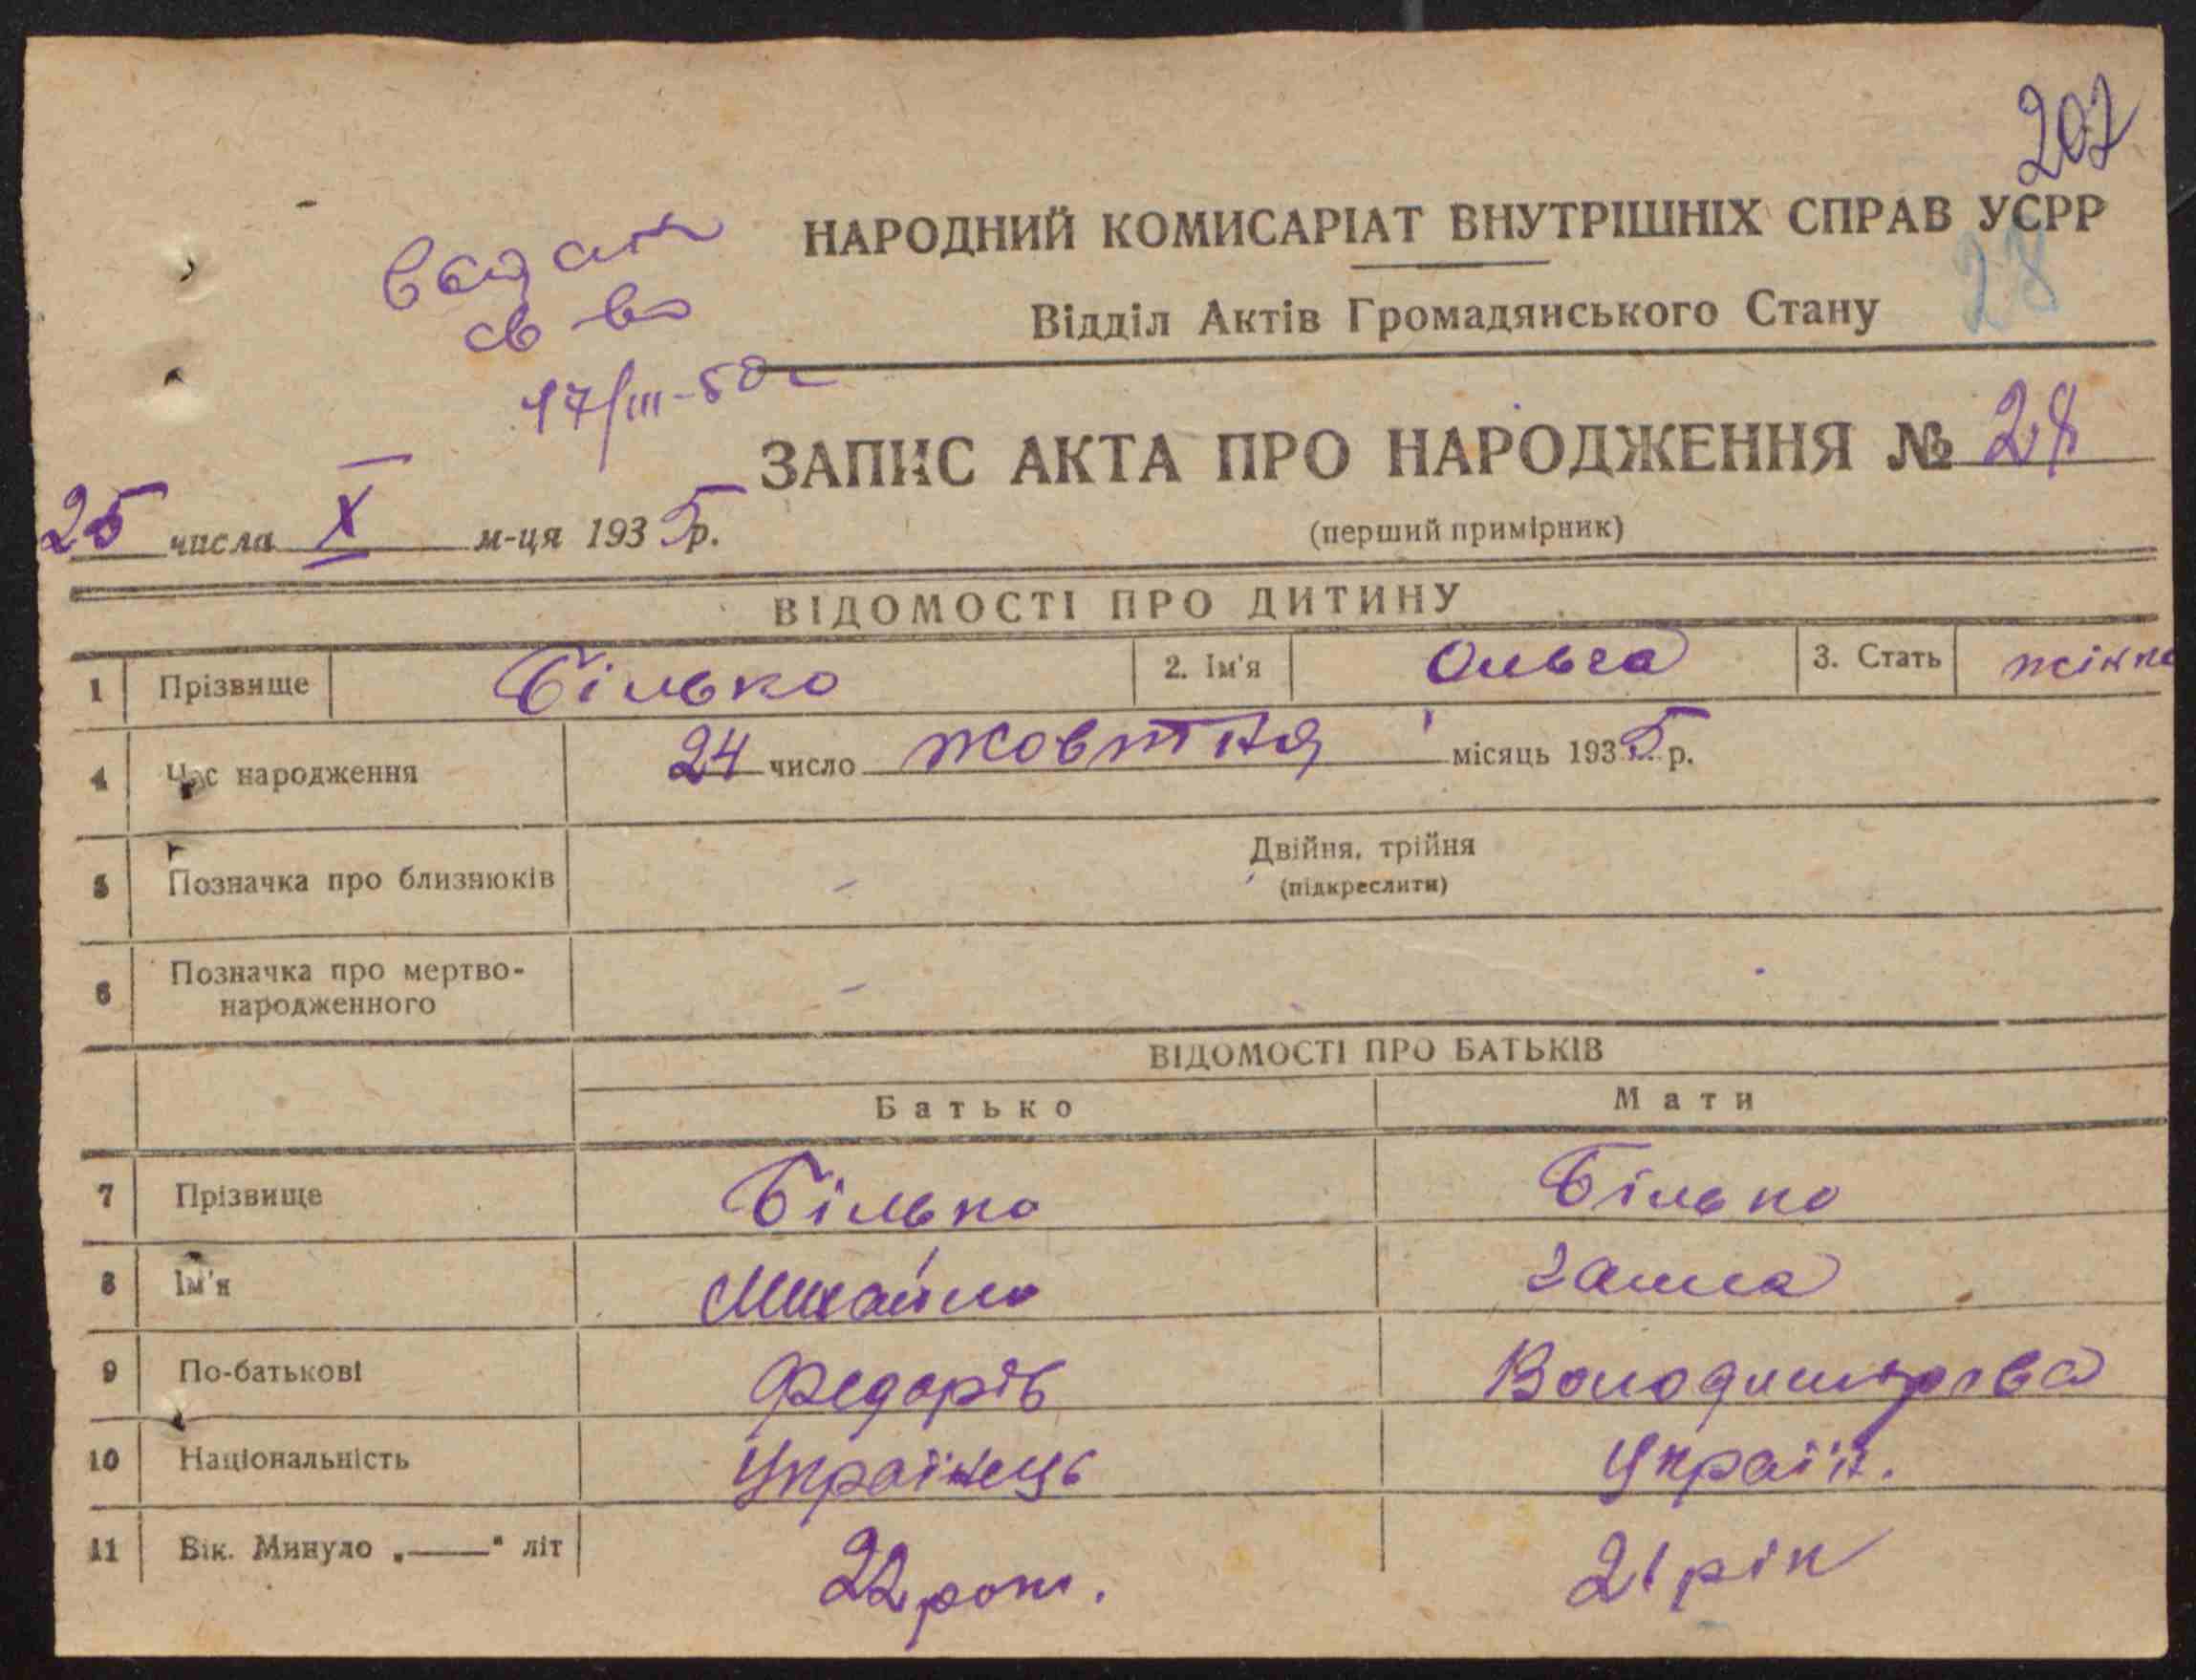 207
НАРОДНИЙ КОМИСАРІАТ ВНУТРІШНІХ СПРАВ УСРР
28
Відділ Актів Громадянського Стану
св во
17/III-50г
ЗАПИС АКТА ПРО НАРОДЖЕННЯ № 28
25 числа X м-ця 1935р.
(перший примірник)
ВІДОМОСТІ ПРО ДИТИНУ
1 Прізвище Білько 2. Ім'я Ольга 3. Стать жінка
4 Час народження 24 число жовтня місяць 1935 р.
Двійня, трійня
5 Позначка про близнюків - (підкреслити)
6 Позначка про мертво-
народженного -
ВІДОМОСТІ ПРО БАТЬКІВ
Батько Мати
7 Прізвище Білько Білько
8 Ім'я Михайло
9 По-батькові Федорів Володимирова
10 Національність Українець Україн.
11 Вік. Минуло „——“ літ 22 роки. 21 рік